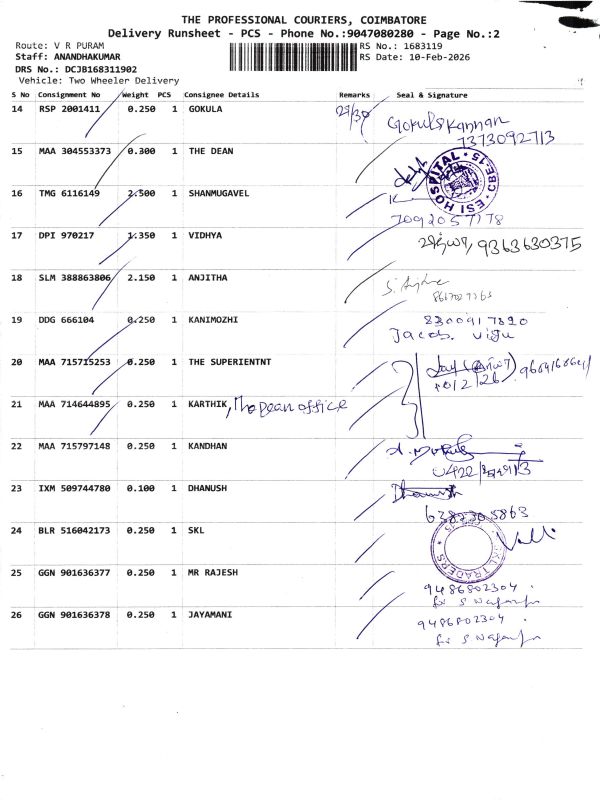 THE PROFESSIONAL COURIERS, COIMBATORE
Delivery Runsheet - PCS - Phone No.:9047080280 - Page No.:2
Route: V R PURAM
RS No.: 1683119
Staff: ANANDHAKUMAR
RS Date: 10-Feb-2026
DRS No.: DCJB168311902
Vehicle: Two Wheeler Delivery
S No Consignment No Weight PCS Consignee Details Remarks Seal & Signature
14 RSP 2001411 0.250 1 GOKULA
Gokulakannan
7373092713
15 MAA 304553373 0.300 1 THE DEAN
ESI HOSPITAL CBE-15
16 TMG 6116149 2.500 1 SHANMUGAVEL
7092057178
17 DPI 970217 1.350 1 VIDHYA
9363630375
18 SLM 388863806 2.150 1 ANJITHA
S. Anjitha
19 DDG 666104 0.250 1 KANIMOZHI
8300917820
Jacob. viju
20 MAA 715715253 0.250 1 THE SUPERIENTNT
10/2/26
21 MAA 714644895 0.250 1 KARTHIK, The Dean office
22 MAA 715797148 0.250 1 KANDHAN
23 IXM 509744780 0.100 1 DHANUSH
Dhanush
6382305863
24 BLR 516042173 0.250 1 SKL
SKL TRADERS
25 GGN 901636377 0.250 1 MR RAJESH
9486802304
26 GGN 901636378 0.250 1 JAYAMANI
9486802304